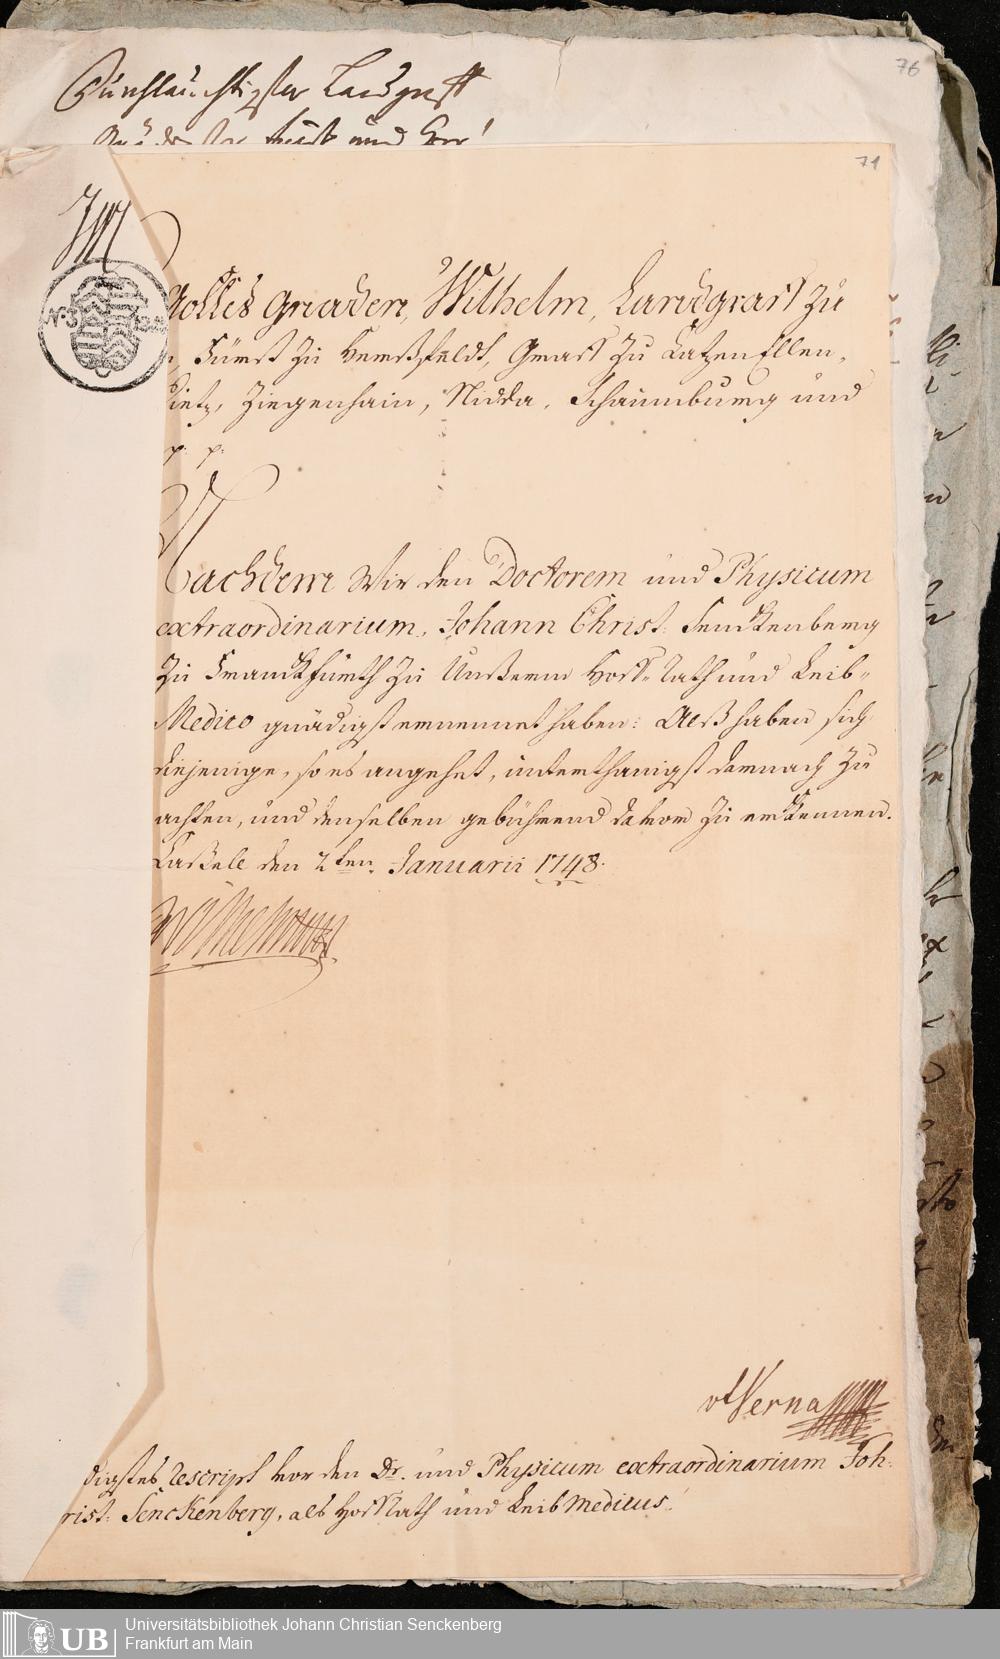 76
Durchlauchtigster Landgraff
Fürst und Herr!
71
Gottes Gnaden, Wilhelm, Landgraff zu
Fürst zu Herßfeldt, Graff zu CatzenEllen,
Dietz, Ziegenhain, Nidda, Schaumburg und
p. p.
Nachdem Wir den Doctorem und Physicum
extraordinarium, Johann Christ. Senckenberg
zu Franckfurth zu Unßerm Hoff-Rath und Leib-
Medico gnädigst ernennet haben: Alß haben sich
diejenige, so es angehet, unterthänigst darnach zu
achten, und denselben gebührend davor zu erkennen.
Caßell den 2ten. Januarii 1748.
Wilhelm
vt Verna
digstes Rescript vor den Dr. und Physicum extraordinarium Joh.
rist. Senckenberg, als HoffRath und Leib Medicus.
Universitätsbibliothek Johann Christian Senckenberg
UB
Frankfurt am Main